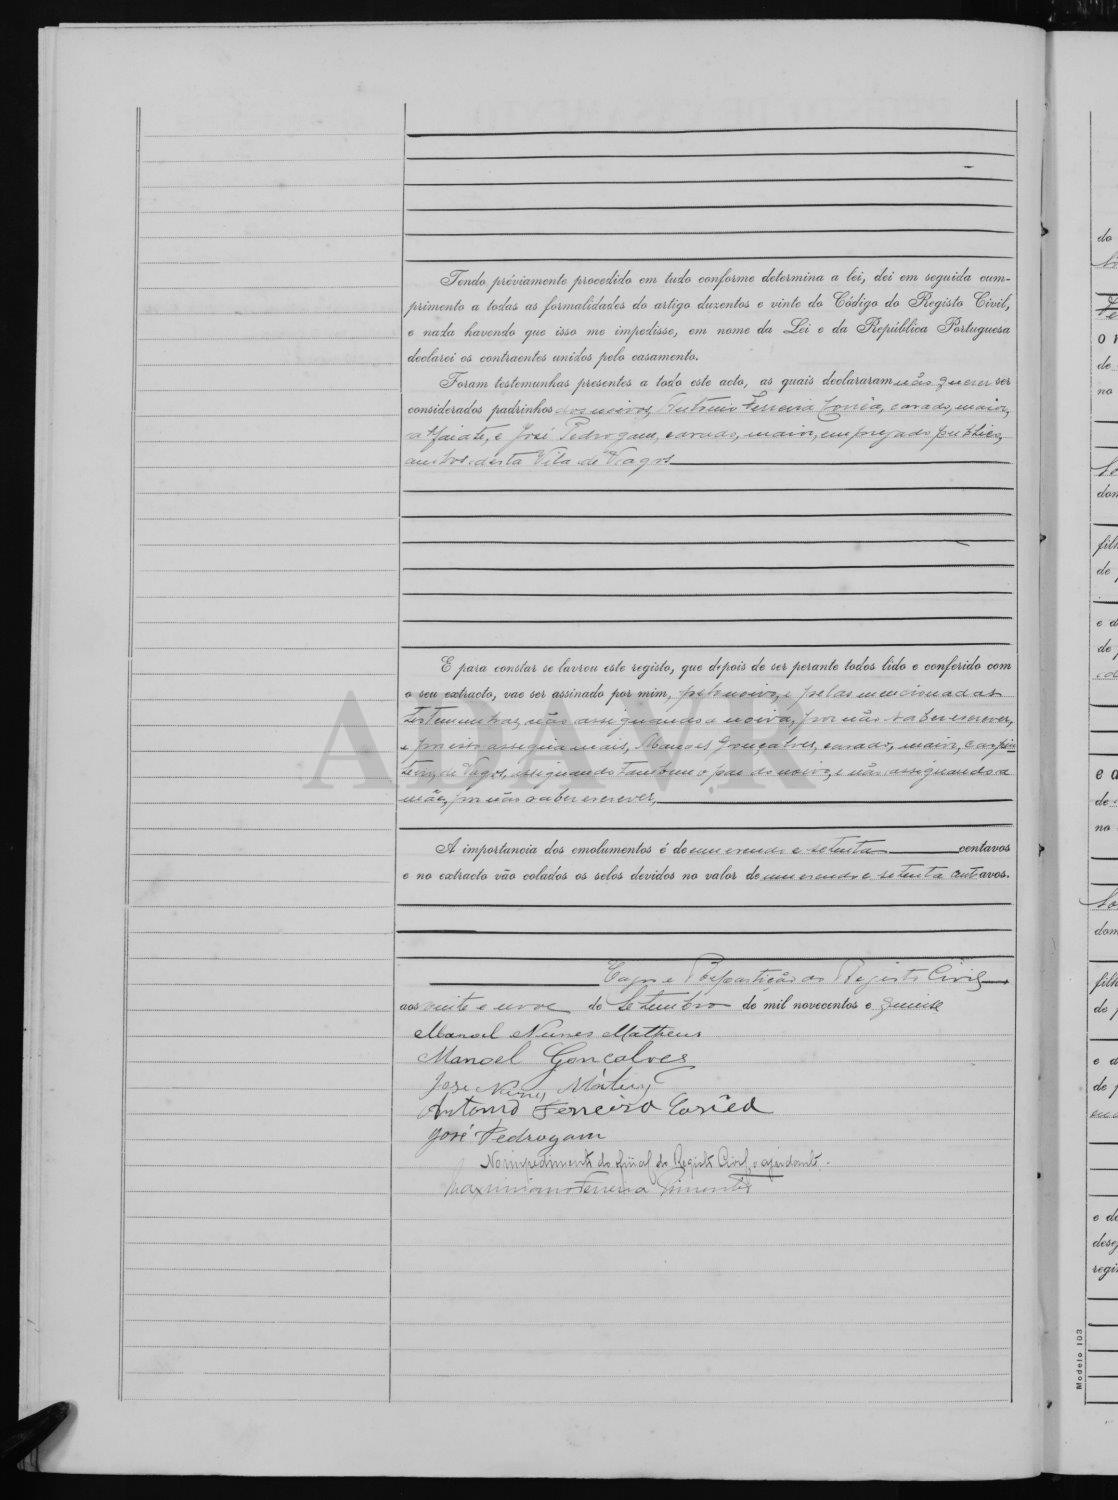 Tendo préviamente procedido em tudo conforme determina a lei, dei em seguida cum-
primento a todas as formalidades do artigo duzentos e vinte do Código do Registo Civil,
e nada havendo que isso me impedisse, em nome da Lei e da República Portuguesa
declarei os contraentes unidos pelo casamento.
Foram testemunhas presentes a todo este acto, as quais declararam não querer ser
considerados padrinhos dos noivos, Antonio Ferreira Corrêa, casado, maior,
alfaiate, e José Pedrogam, casado, maior, empregado publico,
ambos desta Vila de Vagos
E para constar se lavrou este registo, que depois de ser perante todos lido e conferido com
o seu extracto, vae ser assinado por mim, pelo noivo, e pelas mencionadas
testemunhas, não assignando a noiva, por não saber escrever,
e por isso assigna mais, Manoel Gonçalves, casado, maior, carpin
teiro, de Vagos, assignando tambem o pae do noivo, e não assignando a
mãe, por não saber escrever,
A importancia dos emolumentos é de um escudo e setenta centavos
e no extracto vão colados os selos devidos no valor de um escudo e setenta centavos.
Vagos e Repartição do Registo Civil,
aos vinte e nove de Setembro de mil novecentos e quinze
Manoel Nunes Matheus
Manoel Gonçalves
José Nunes
Antonio Ferreira Corrêa
José Pedrogam
No impedimento do oficial do Registo Civil, o ajudante.
Maximiano Ferreira Pimentel
ADAVR
do
de
no
dom
filh
de
e a
de p
e a
de
no
dom
filh
de p
e a
de p
e de
desej
regi
Modelo 103